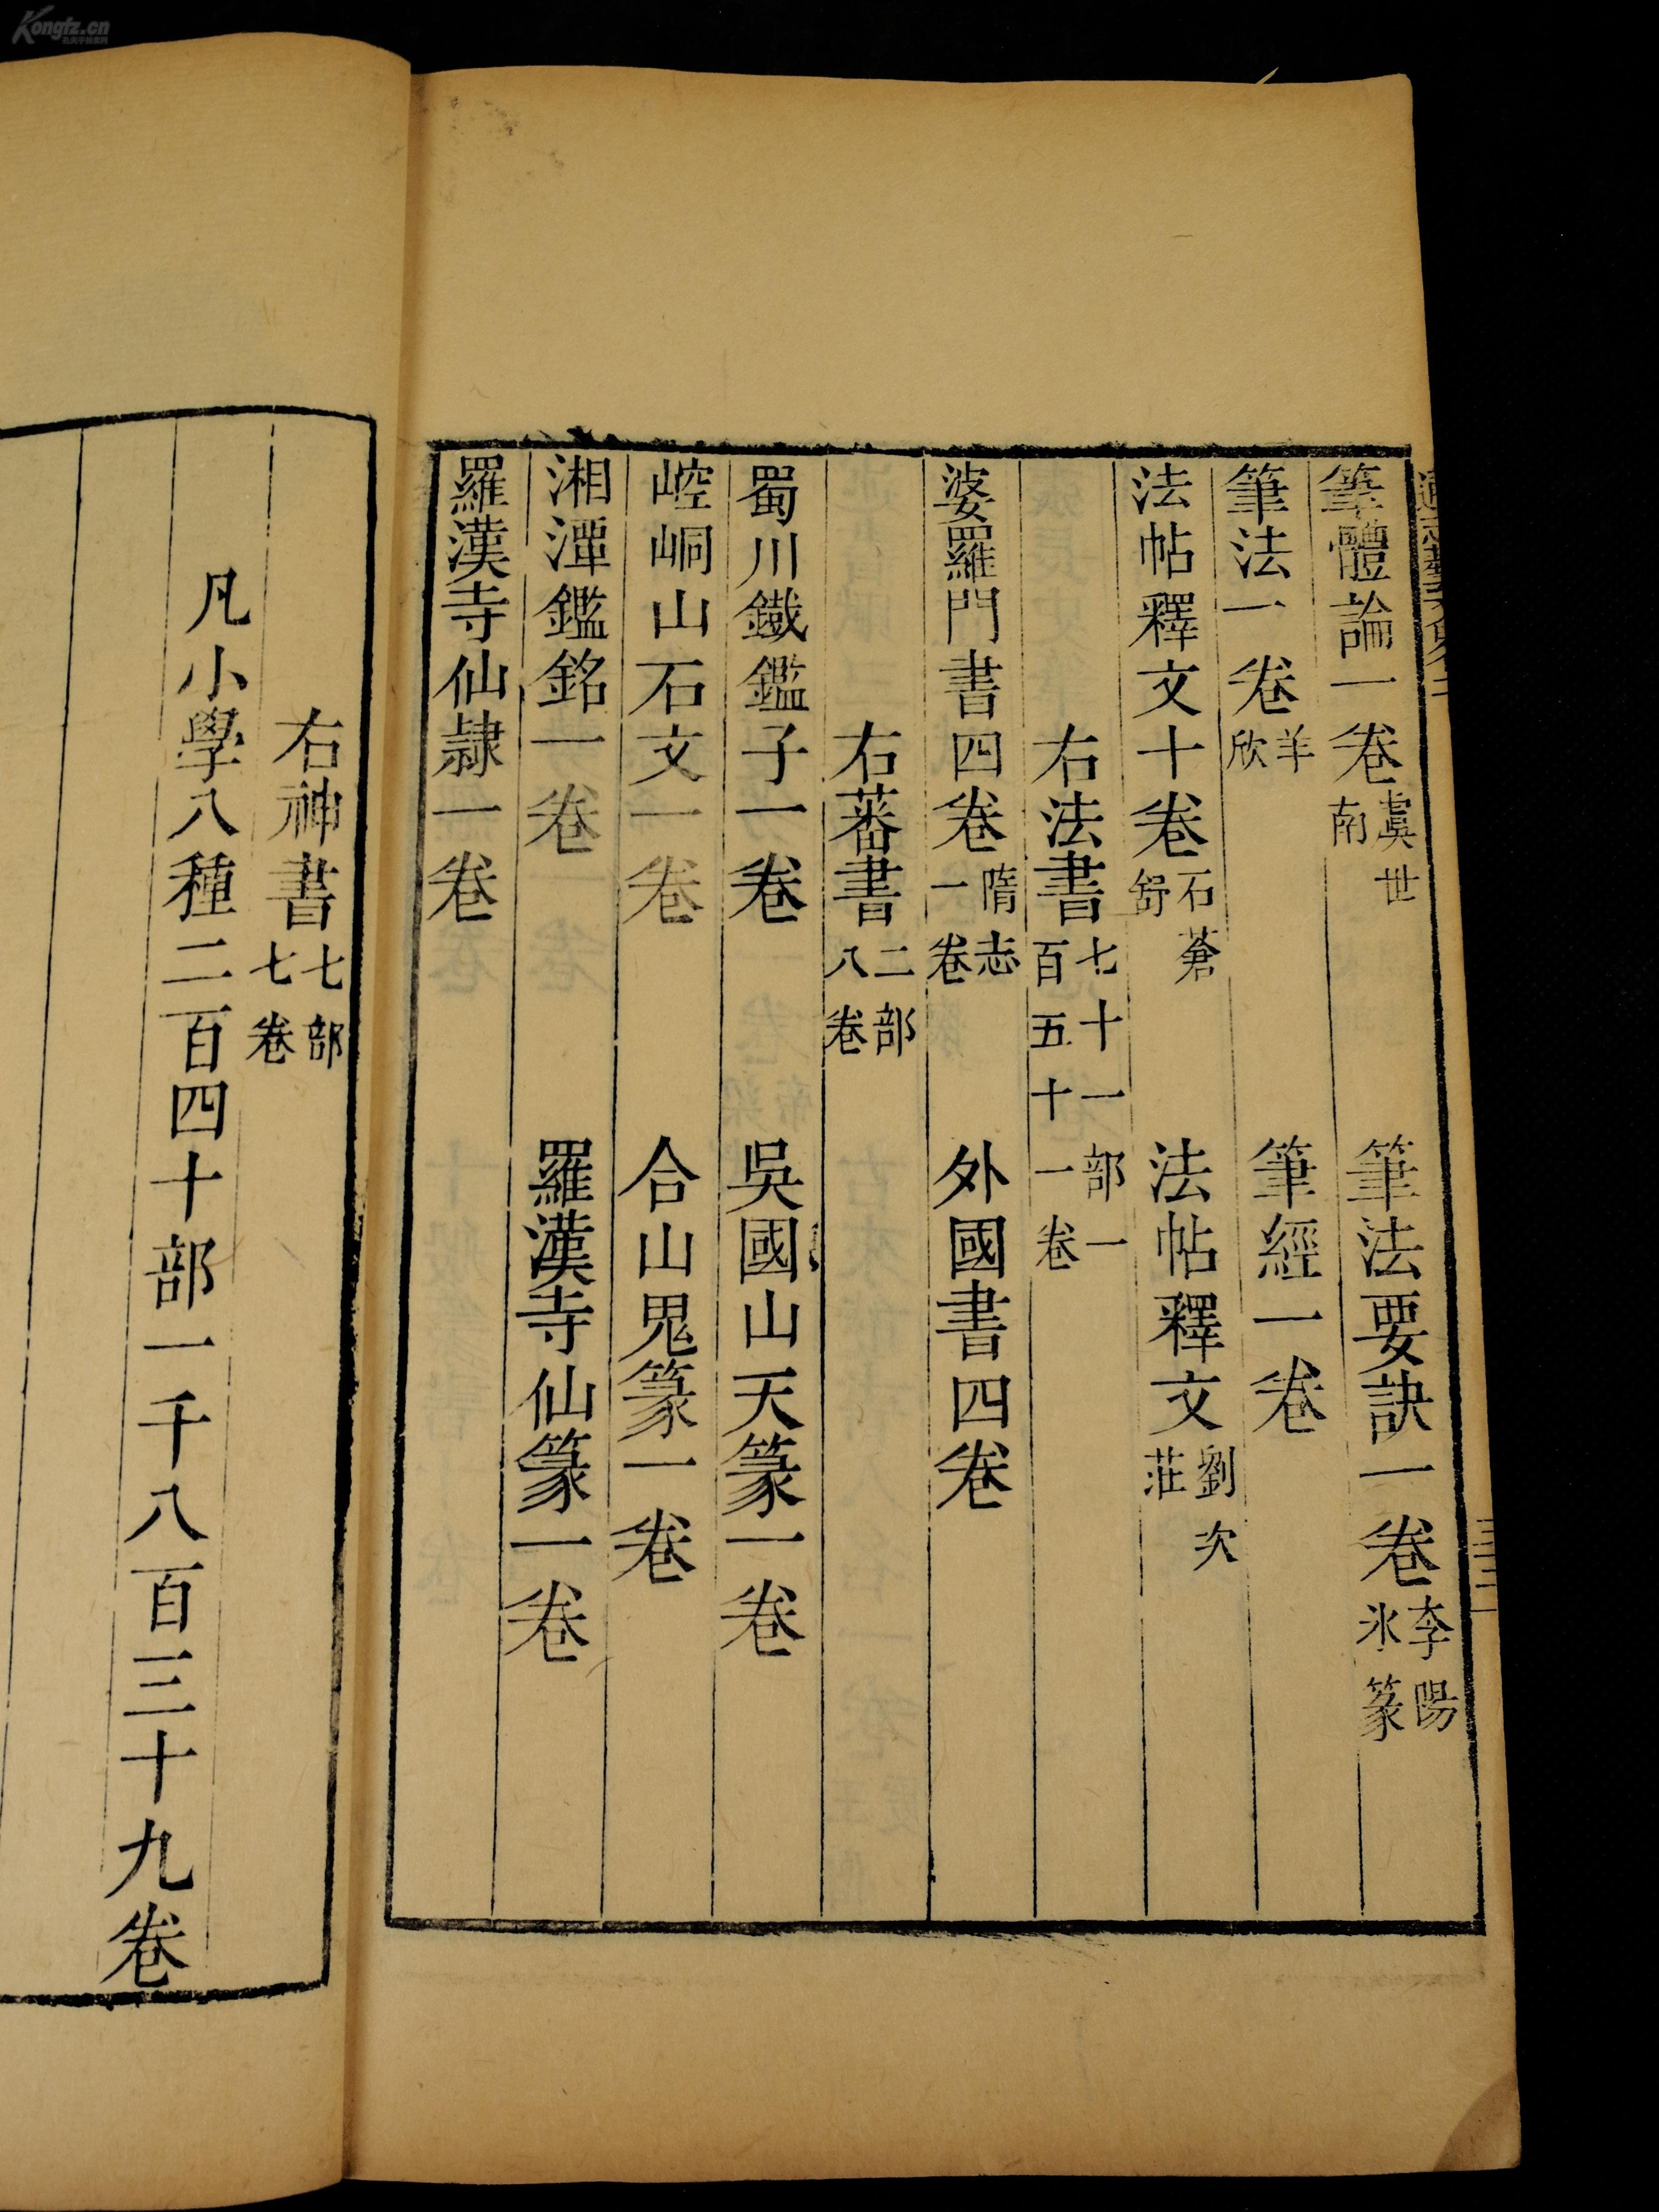 Kongfz.cn
筆體論一卷虞世南　筆法要訣一卷李陽氷篆
筆法一卷羊欣　筆經一卷
法帖釋文十卷石蒼舒　法帖釋文劉次莊
右法書七十一部一百五十一卷
婆羅門書四卷隋志一卷　外國書四卷
右蕃書二部八卷
蜀川鐵鑑子一卷　吳國山天篆一卷
崆峒山石文一卷　合山鬼篆一卷
湘潭鑑銘一卷　羅漢寺仙篆一卷
羅漢寺仙隷一卷
右神書七部七卷
凡小學八種二百四十部一千八百三十九卷